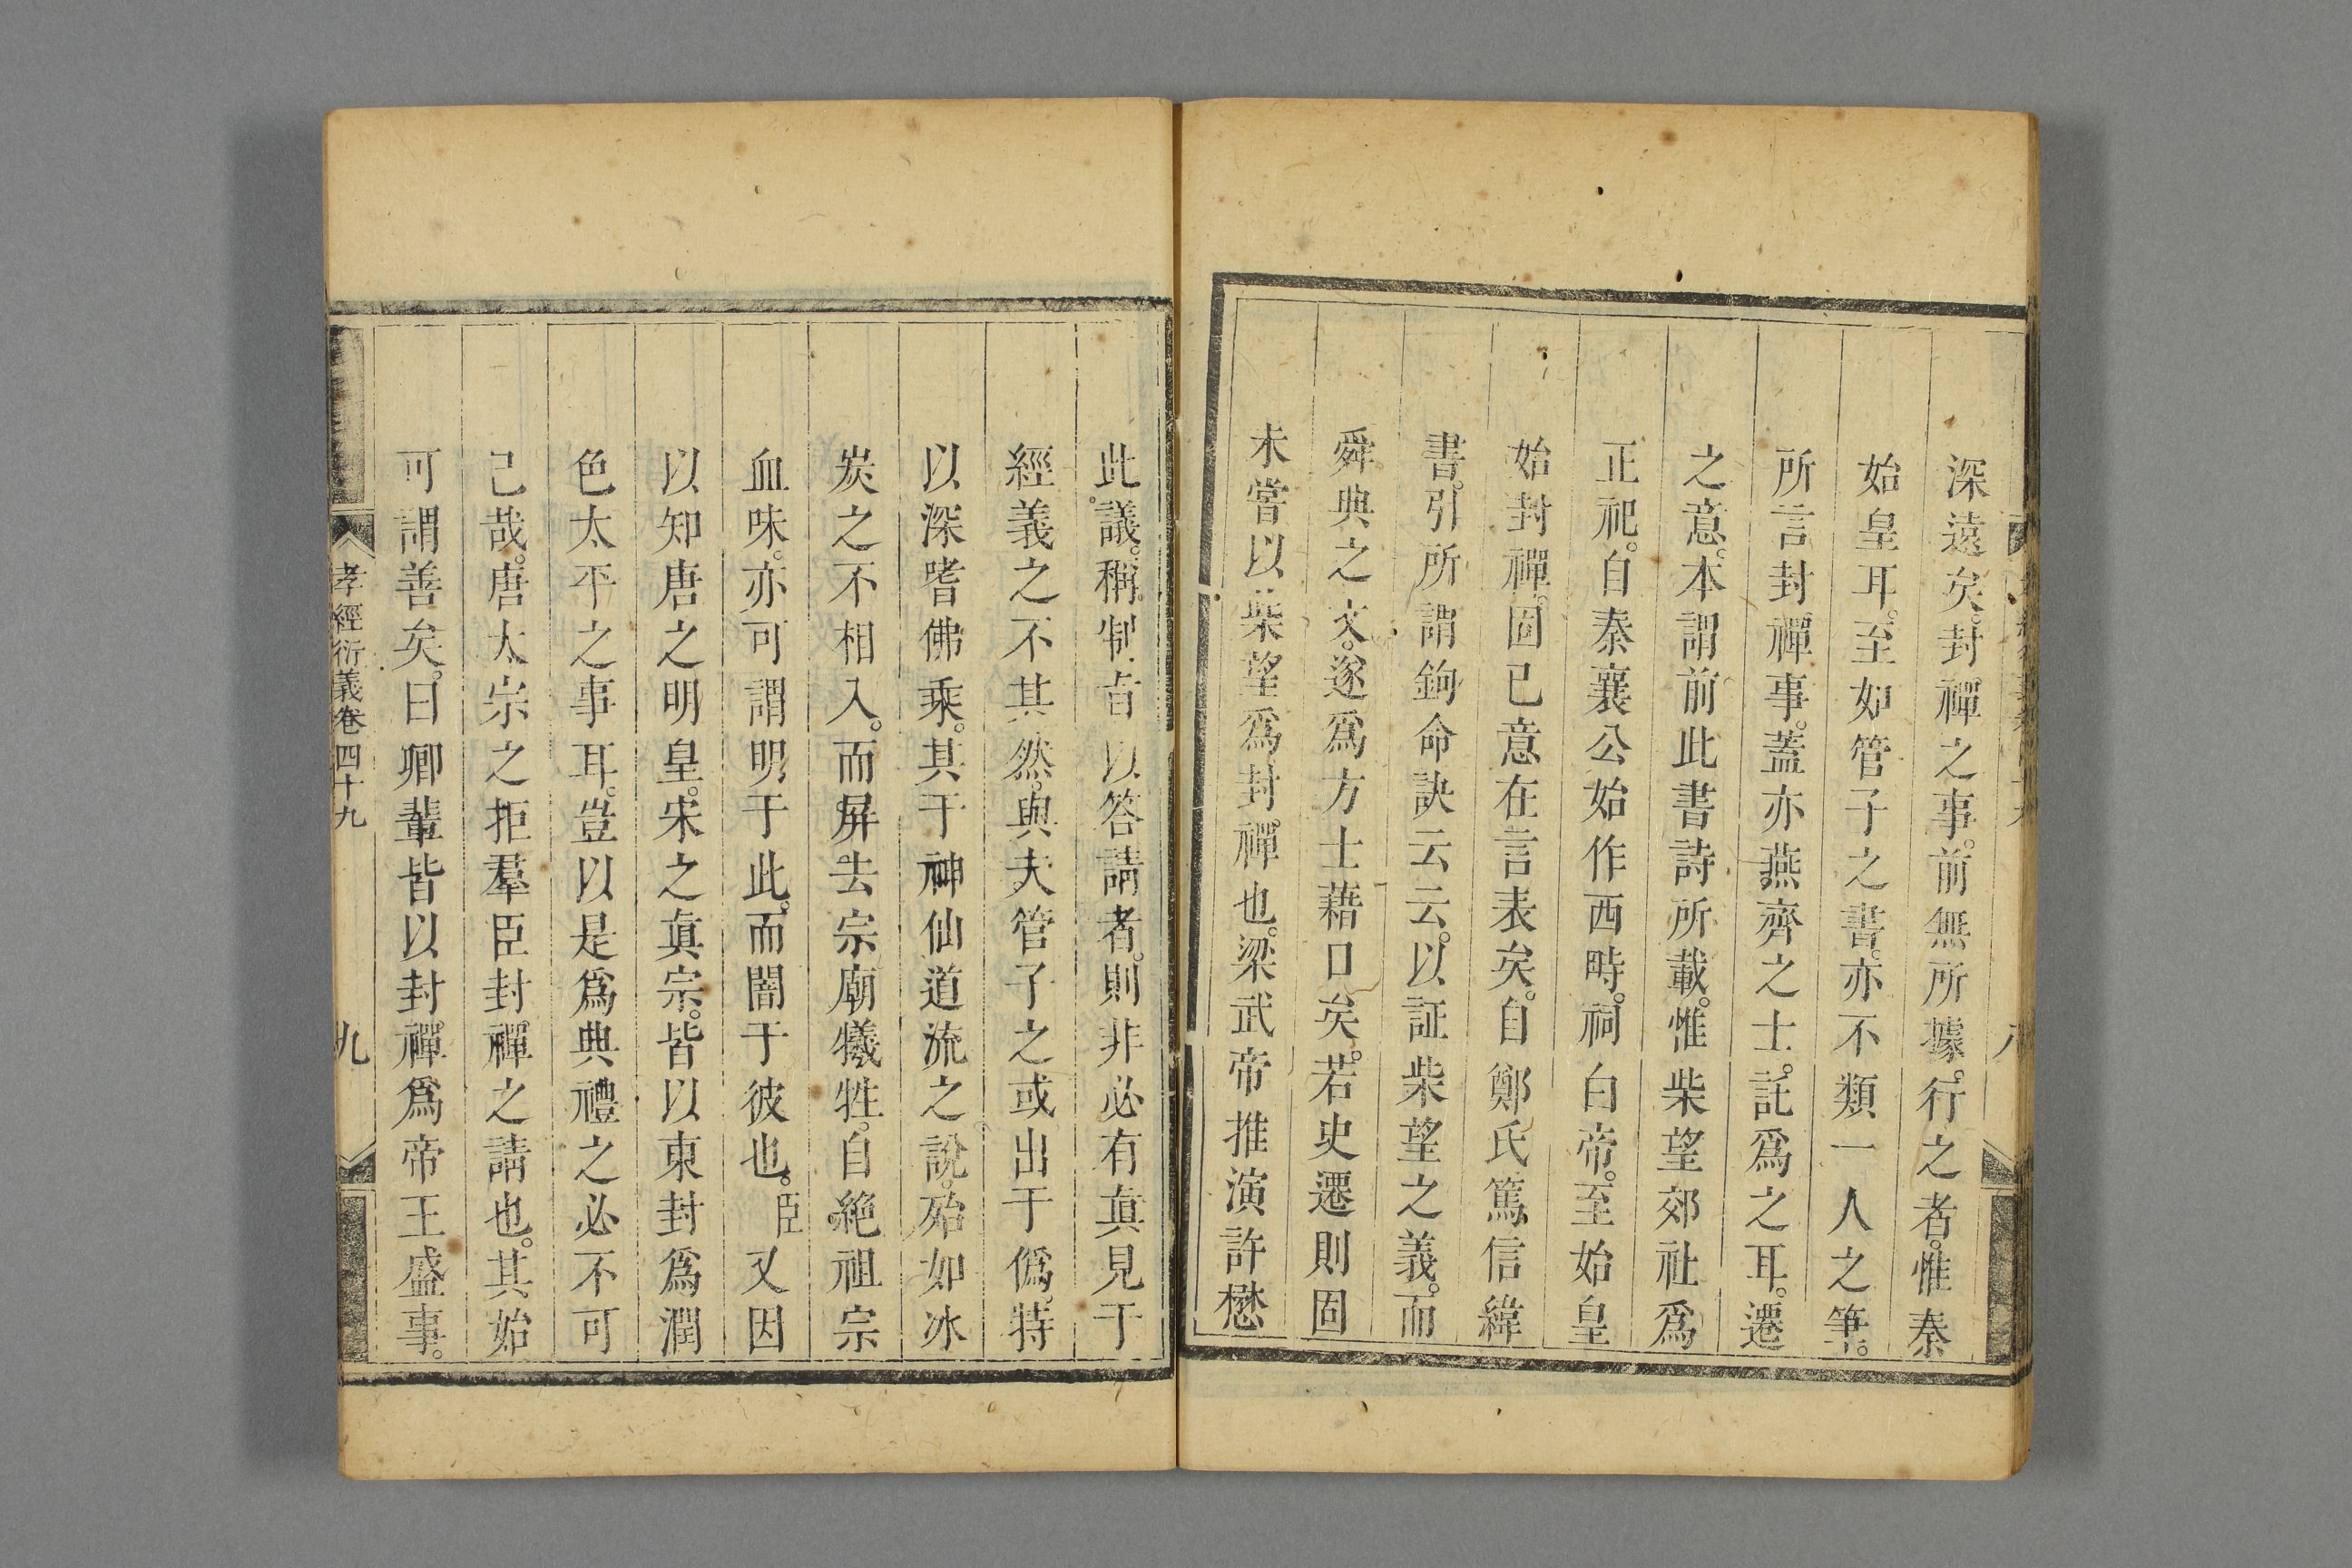 深遠矣。封禪之事。前無所據。行之者。惟秦
始皇耳。至如管子之書。亦不類一人之筆。
所言封禪事。蓋亦燕齊之士。託爲之耳。遷
之意。本謂前此書詩所載。惟柴望郊社爲
正祀。自秦襄公始作西畤。祠白帝。至始皇
始封禪。固已意在言表矣。自鄭氏篤信緯
書。引所謂鉤命訣云云。以証柴望之義。而
舜典之文。遂爲方士藉口矣。若史遷則固
未嘗以柴望爲封禪也。梁武帝推演許懋
此議。稱制旨以答請者。則非必有眞見于
經義之不其然。與夫管子之或出于僞。特
以深嗜佛乘。其于神仙道流之說。殆如冰
炭之不相入。而屏去宗廟犧牲。自絶祖宗
血味。亦可謂明于此。而闇于彼也。臣又因
以知唐之明皇。宋之眞宗。皆以東封爲潤
色太平之事耳。豈以是爲典禮之必不可
己哉。唐太宗之拒羣臣封禪之請也。其始
可謂善矣。曰卿輩皆以封禪爲帝王盛事。
孝經衍義卷四十九
九